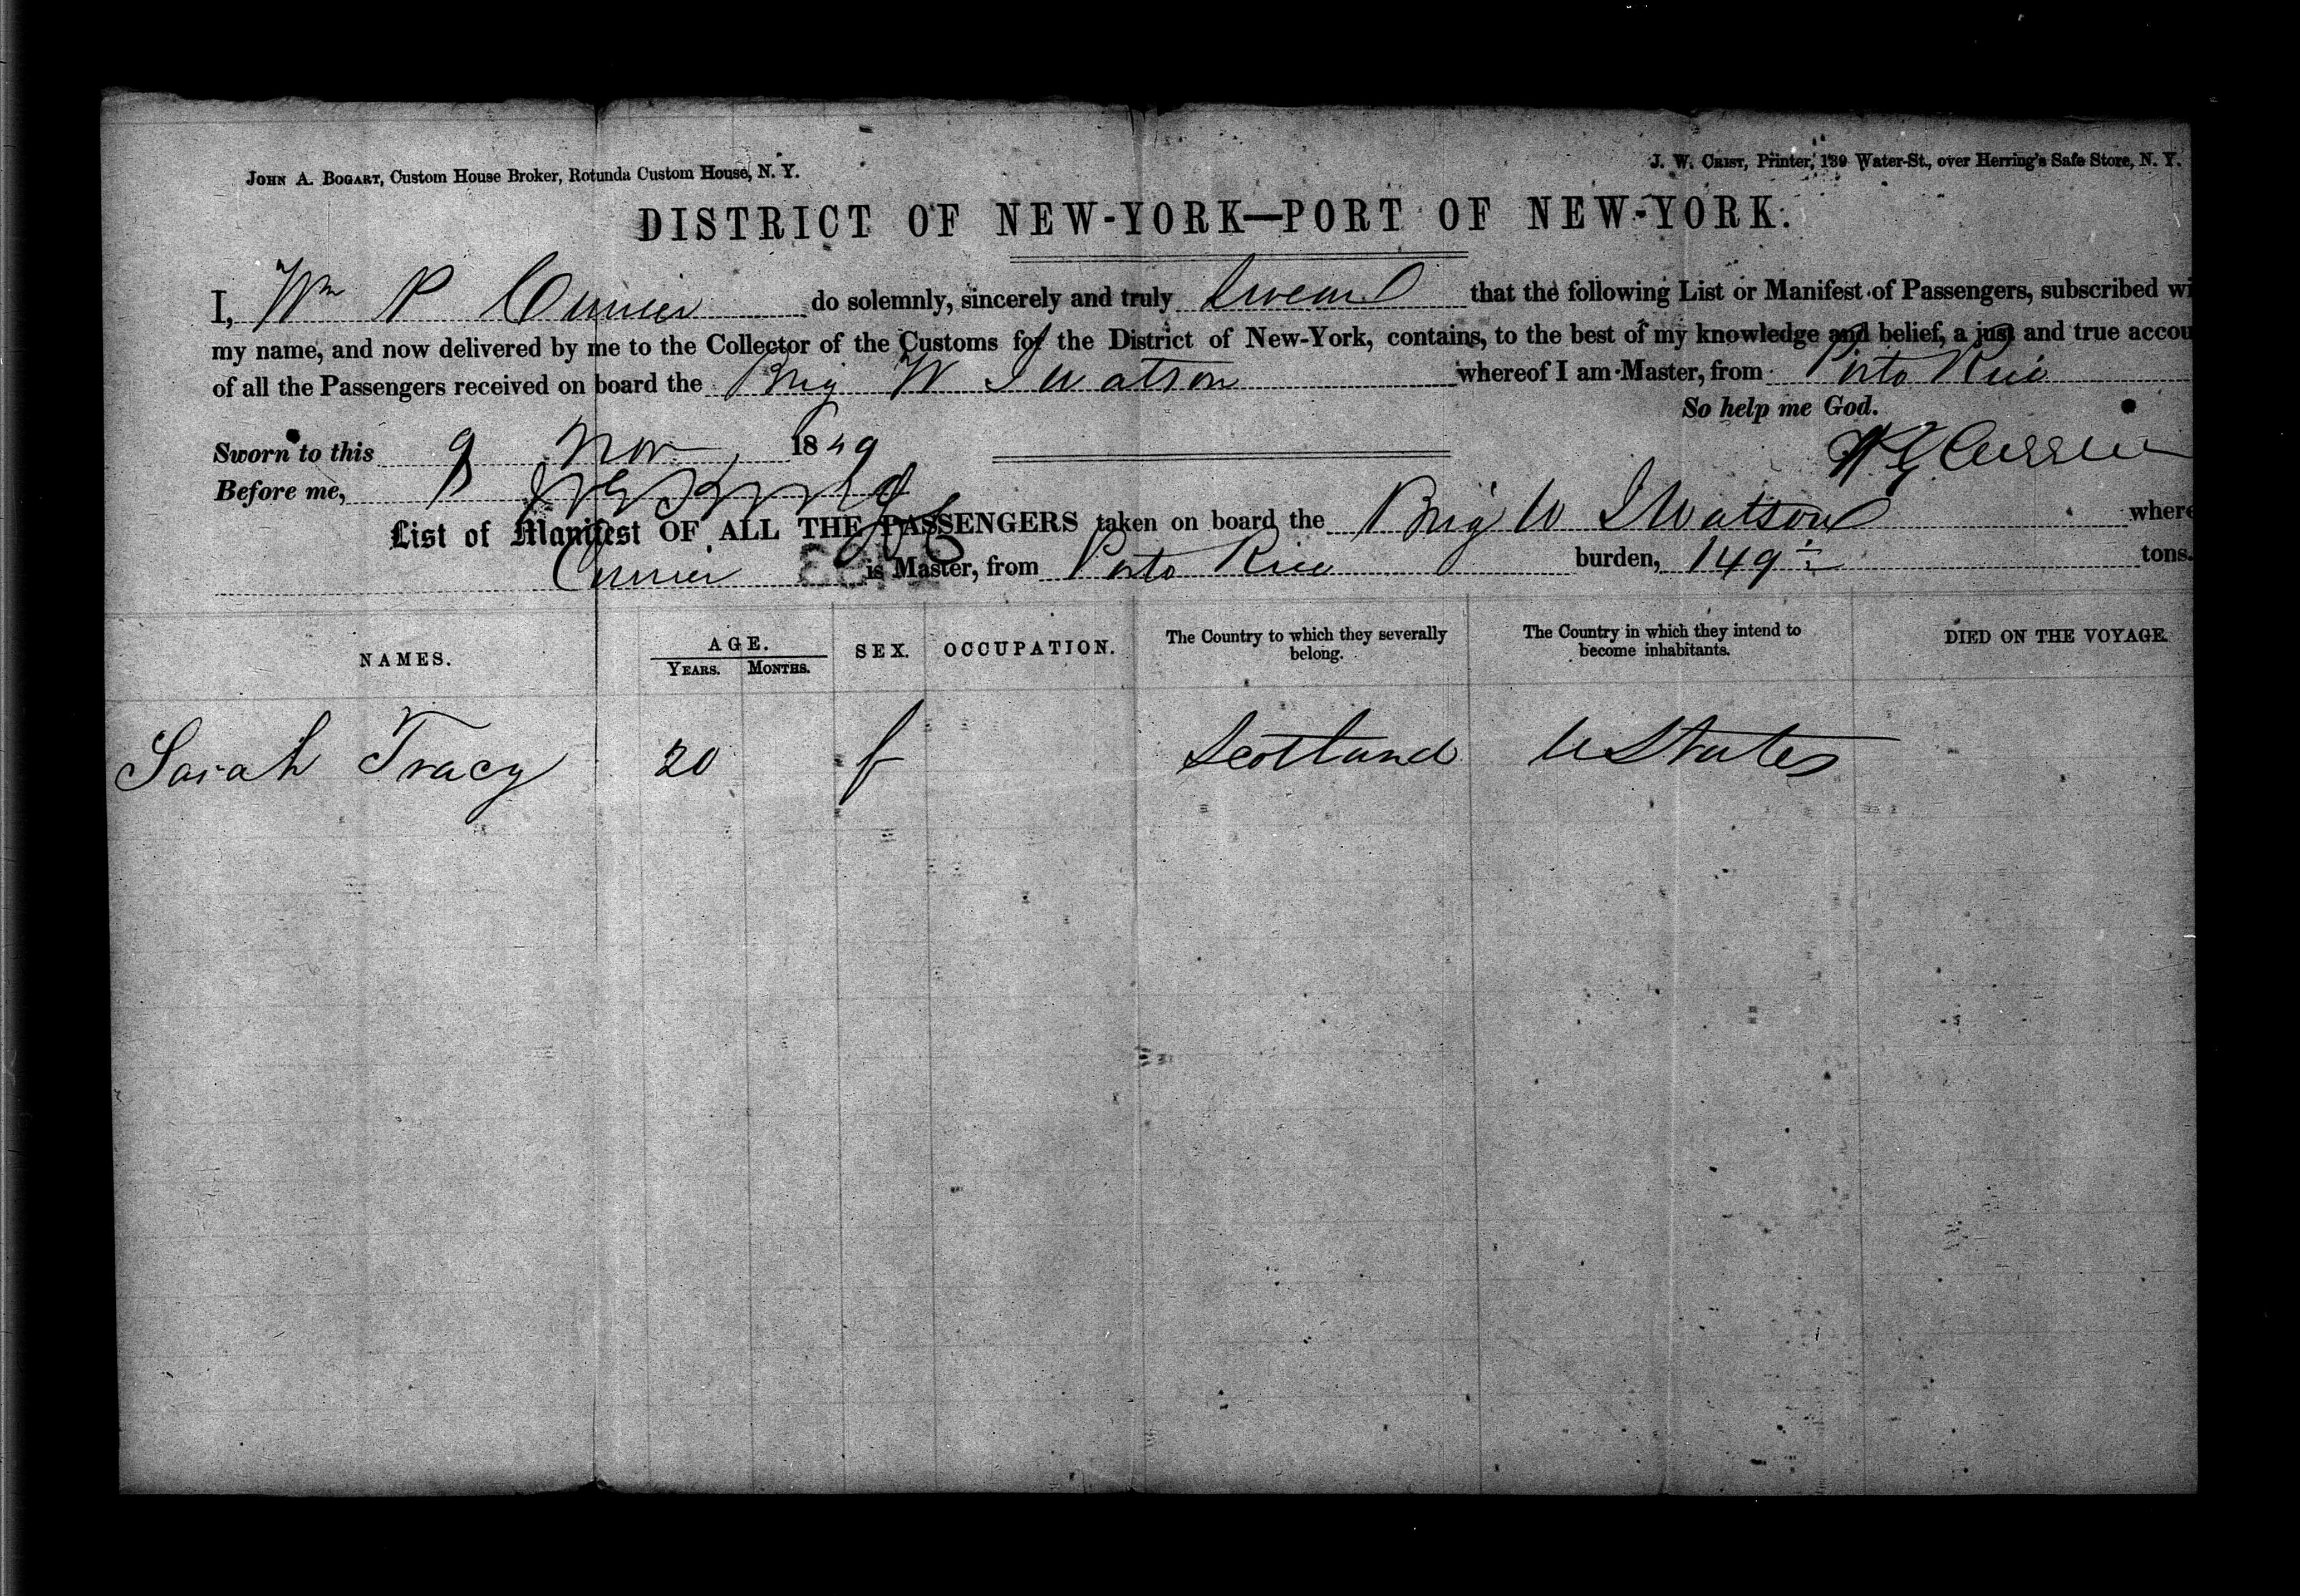 JOHN A. BOGART, Custom House Broker, Rotunda Custom House, N. Y.
J. W. CRIST, Printer, 139 Water-St., over Herring's Safe Store, N. Y.
DISTRICT OF NEW-YORK—PORT OF NEW-YORK.
I, Wm P Currier do solemnly, sincerely and truly swear that the following List or Manifest of Passengers, subscribed wi
my name, and now delivered by me to the Collector of the Customs for the District of New-York, contains, to the best of my knowledge and belief, a just and true accou
of all the Passengers received on board the Brig W I Watson whereof I am Master, from Porto Rico
So help me God.
Sworn to this 9 Nov 1849
Currier
Before me,
List of Manifest OF ALL THE PASSENGERS taken on board the Brig W I Watson where
Currier is Master, from Porto Rico burden, 149 tons.
NAMES. AGE. YEARS. MONTHS. SEX. OCCUPATION. The Country to which they severally belong. The Country in which they intend to become inhabitants. DIED ON THE VOYAGE.
Sarah Tracy 20 f Scotland U States